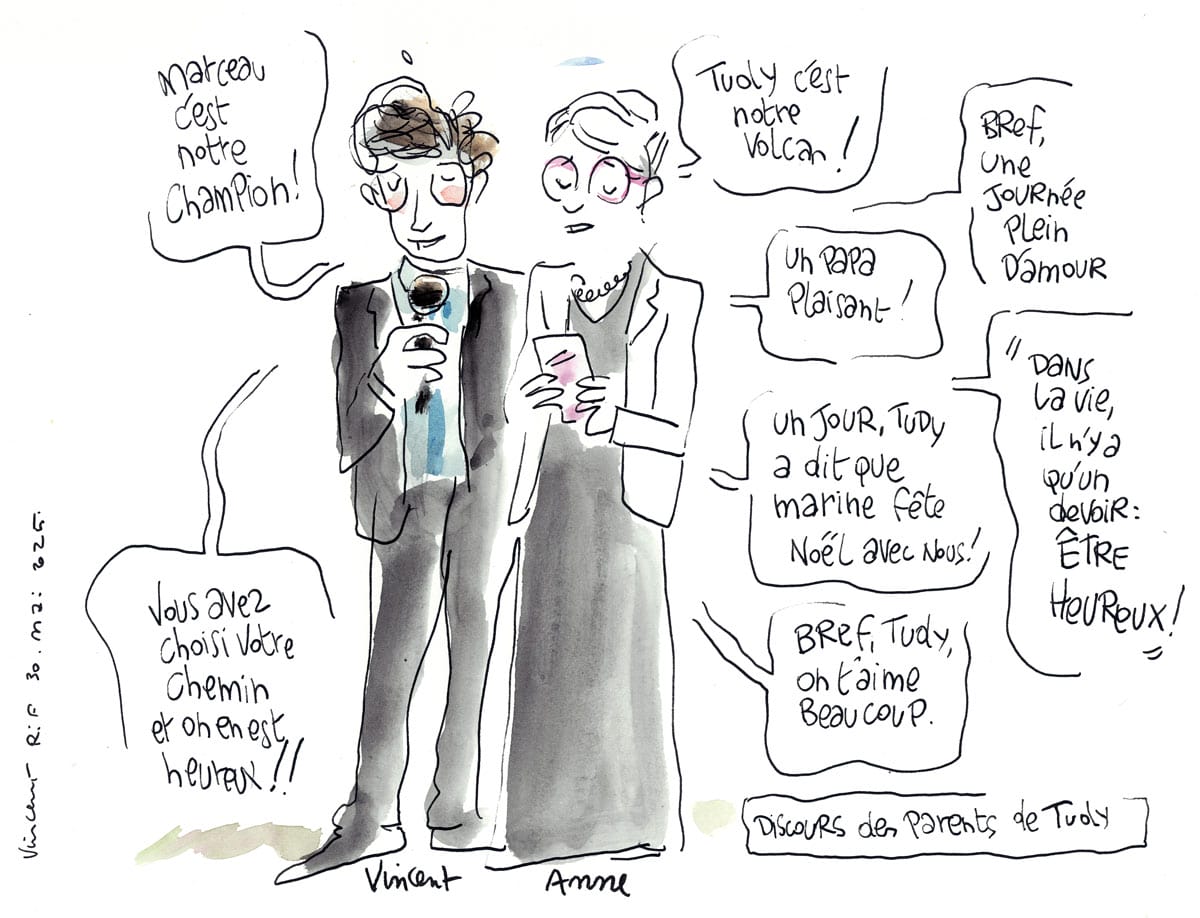 Marceau
c'est
notre
Champion!
Tudy c'est
notre
Volcan!
BREf,
une
JOURNée
PLEIN
D'AMOUR
Un PAPA
PLaisant!
"DANS
La vie,
il n'y a
qu'un
devoiR:
ÊTRE
HEUREUX!"
Un JOUR, TUDY
a dit que
marine fête
NOËL avec NOUS!
Vous avez
choisi Votre
Chemin
et on en est
heureux!!
BRef, Tudy,
on t'aime
BEAUCOUP.
DISCOURS des Parents de Tudy
Vincent
Anne
Vincent R.i.F 30. mai 2025.